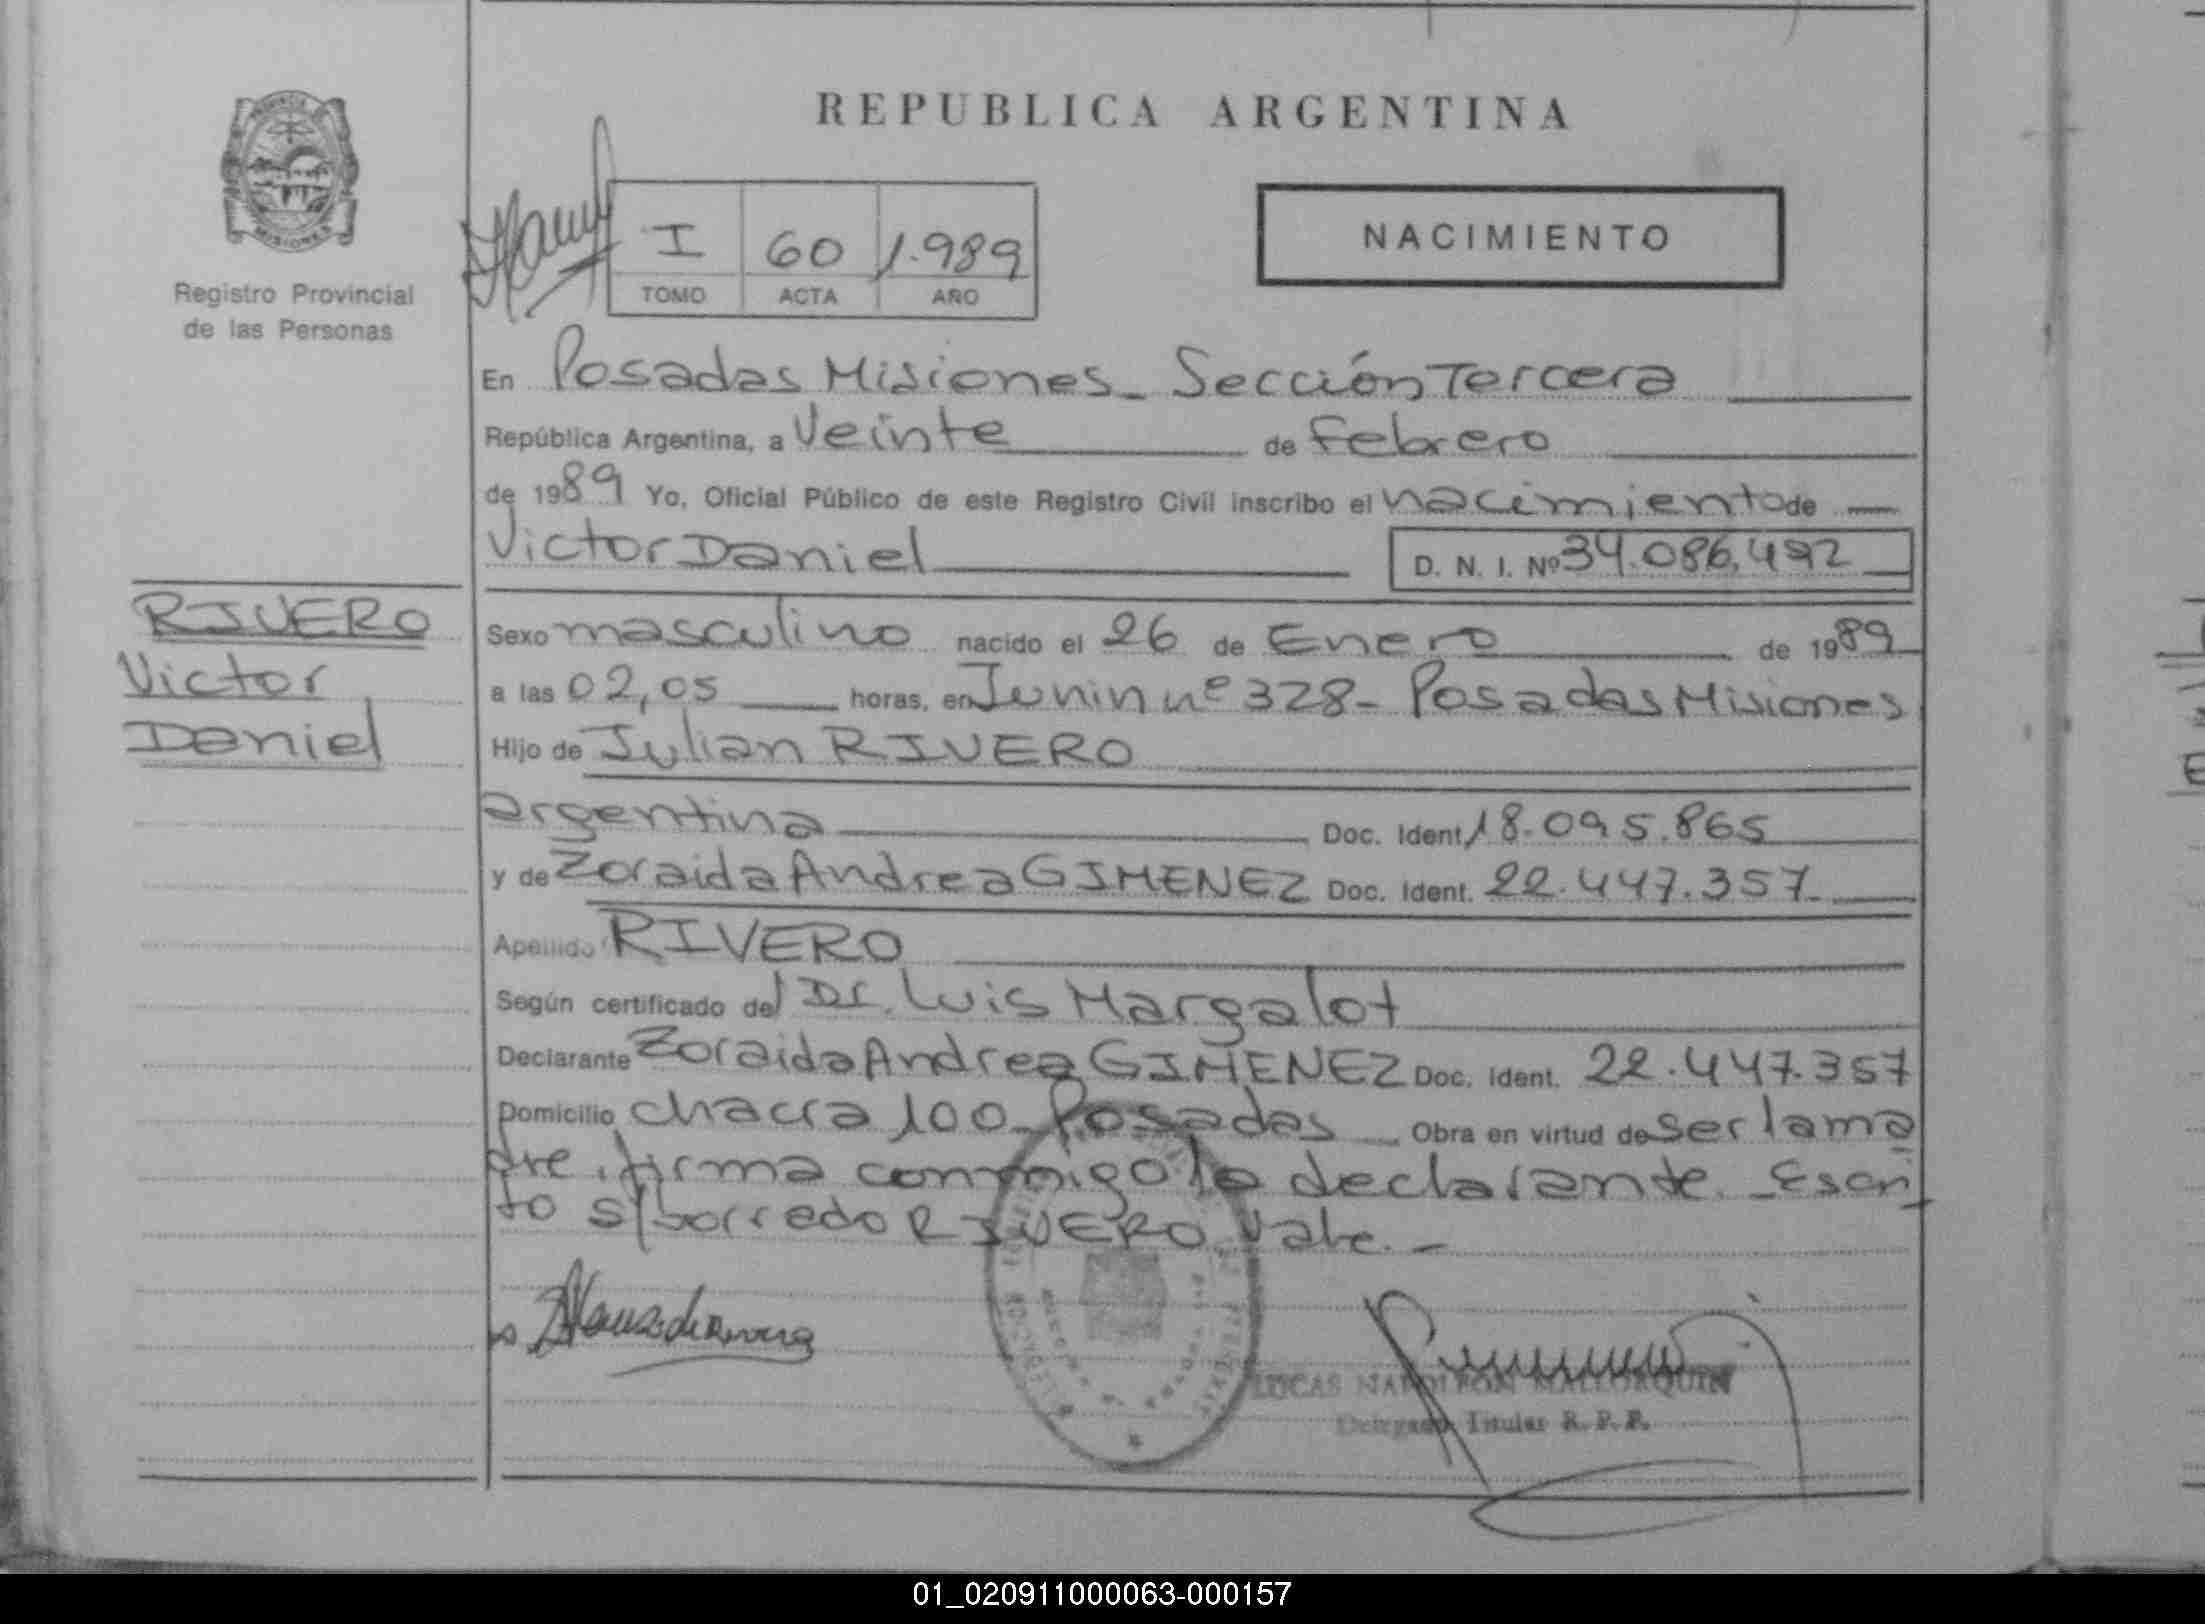 REPUBLICA ARGENTINA
PROVINCIA
MISIONES
Registro Provincial
de las Personas
I 60 1.989
TOMO ACTA AÑO
NACIMIENTO
En Posadas Misiones_ Sección Tercera
República Argentina, a Veinte de Febrero
de 1989 Yo, Oficial Público de este Registro Civil inscribo el nacimiento de
Victor Daniel D. N. I. Nº 34.086.492
RIVERO
Victor
Daniel
Sexo masculino nacido el 26 de Enero de 1989
a las 02,05 horas, en Junin nº 328- Posadas Misiones
Hijo de Julian RIVERO
argentina Doc. Ident. 18.095.865
y de Zoraida Andrea GIMENEZ Doc. Ident. 22.447.357
Apellido RIVERO
Según certificado del Dr. Luis Margalot
Declarante Zoraida Andrea GIMENEZ Doc. Ident. 22.447.357
Domicilio chacra 100_ Posadas Obra en virtud de ser la ma
dre, firma conmigo la declarante._Escri
to s/borrado RIVERO. Vale.-
LUCAS NAPOLEON MALLORQUIN
Delegado Titular R. P. P.
01_020911000063-000157